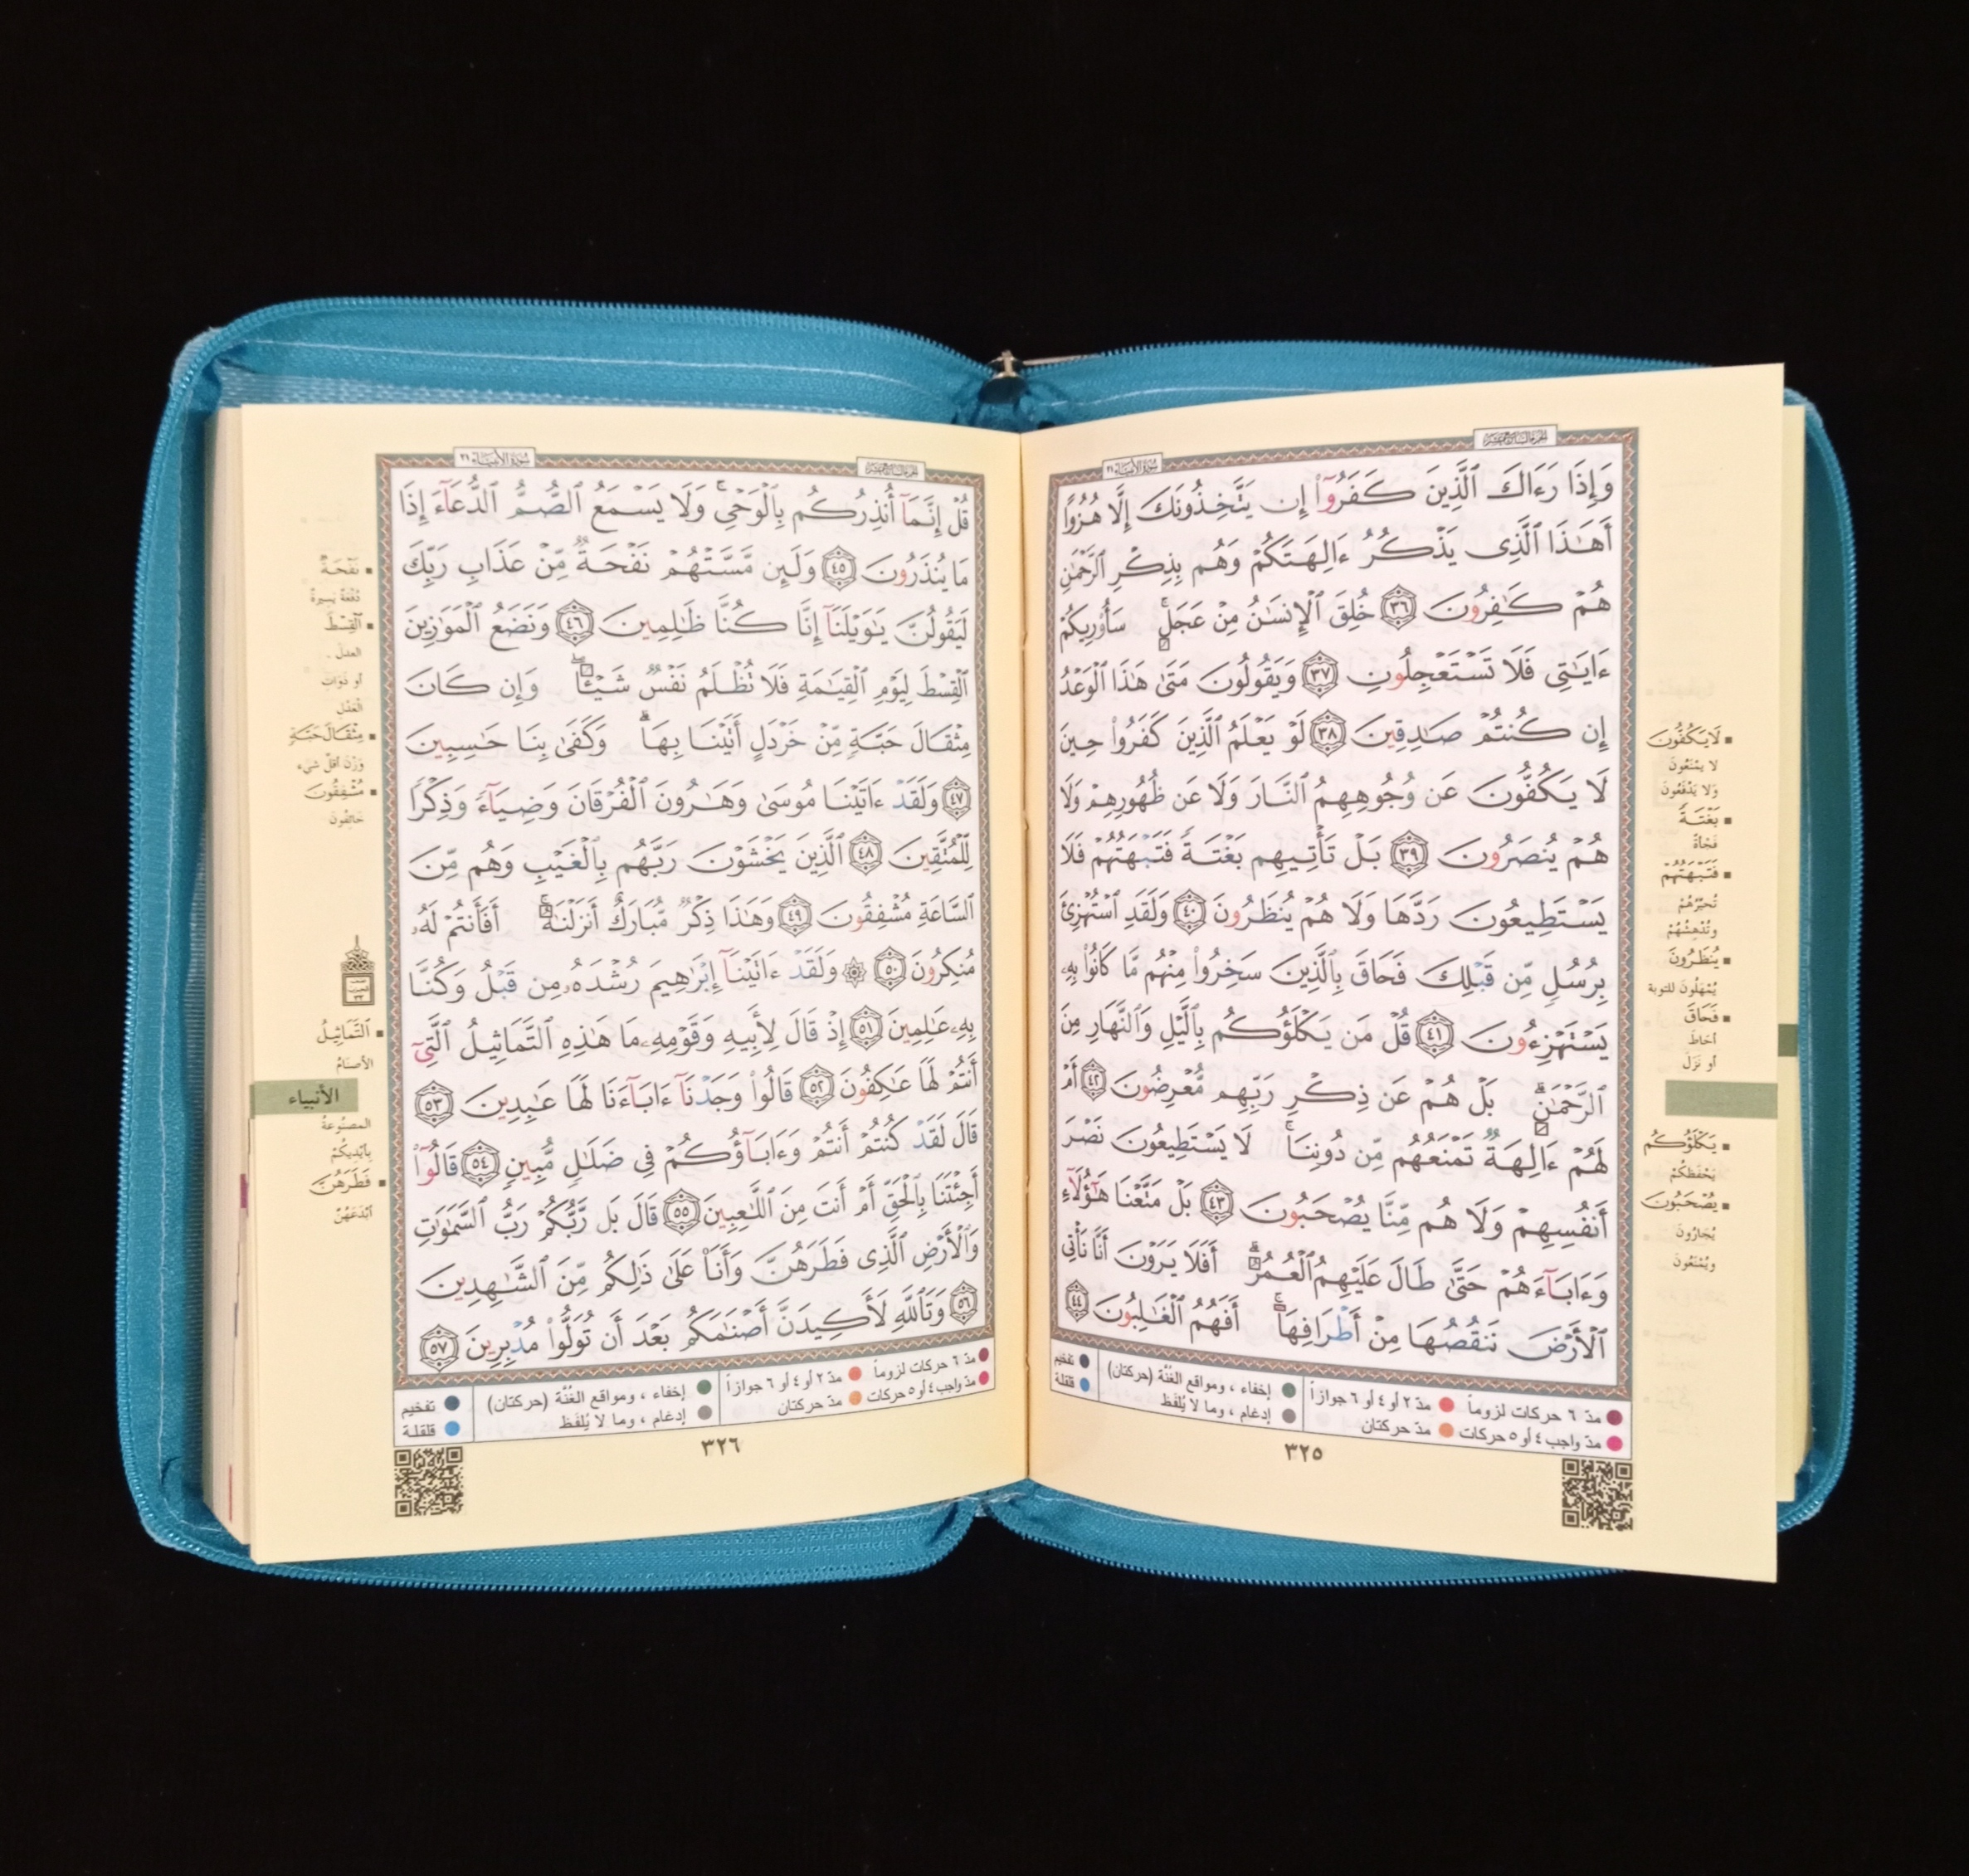 الجزء السابع عشر
سورة الأنبياء ٢١
وَإِذَا رَءَاكَ ٱلَّذِينَ كَفَرُوٓا۟ إِن يَتَّخِذُونَكَ إِلَّا هُزُوًا
أَهَـٰذَا ٱلَّذِى يَذْكُرُ ءَالِهَتَكُمْ وَهُم بِذِكْرِ ٱلرَّحْمَـٰنِ
هُمْ كَـٰفِرُونَ ٣٦ خُلِقَ ٱلْإِنسَـٰنُ مِنْ عَجَلٍ ۚ سَأُو۟رِيكُمْ
ءَايَـٰتِى فَلَا تَسْتَعْجِلُونِ ٣٧ وَيَقُولُونَ مَتَىٰ هَـٰذَا ٱلْوَعْدُ
إِن كُنتُمْ صَـٰدِقِينَ ٣٨ لَوْ يَعْلَمُ ٱلَّذِينَ كَفَرُوا۟ حِينَ
لَا يَكُفُّونَ عَن وُجُوهِهِمُ ٱلنَّارَ وَلَا عَن ظُهُورِهِمْ وَلَا
هُمْ يُنصَرُونَ ٣٩ بَلْ تَأْتِيهِم بَغْتَةً فَتَبْهَتُهُمْ فَلَا
يَسْتَطِيعُونَ رَدَّهَا وَلَا هُمْ يُنظَرُونَ ٤٠ وَلَقَدِ ٱسْتُهْزِئَ
بِرُسُلٍ مِّن قَبْلِكَ فَحَاقَ بِٱلَّذِينَ سَخِرُوا۟ مِنْهُم مَّا كَانُوا۟ بِهِۦ
يَسْتَهْزِءُونَ ٤١ قُلْ مَن يَكْلَؤُكُم بِٱلَّيْلِ وَٱلنَّهَارِ مِنَ
ٱلرَّحْمَـٰنِ ۗ بَلْ هُمْ عَن ذِكْرِ رَبِّهِم مُّعْرِضُونَ ٤٢ أَمْ
لَهُمْ ءَالِهَةٌ تَمْنَعُهُم مِّن دُونِنَا ۚ لَا يَسْتَطِيعُونَ نَصْرَ
أَنفُسِهِمْ وَلَا هُم مِّنَّا يُصْحَبُونَ ٤٣ بَلْ مَتَّعْنَا هَـٰٓؤُلَآءِ
وَءَابَآءَهُمْ حَتَّىٰ طَالَ عَلَيْهِمُ ٱلْعُمُرُ ۗ أَفَلَا يَرَوْنَ أَنَّا نَأْتِى
ٱلْأَرْضَ نَنقُصُهَا مِنْ أَطْرَافِهَآ ۚ أَفَهُمُ ٱلْغَـٰلِبُونَ ٤٤
لَا يَكُفُّونَ
لا يمْنَعُونَ
ولا يَدْفَعُونَ
بَغْتَةً
فَجْأةً
فَتَبْهَتُهُمْ
تُحيّرُهُمْ
وتُدْهِشُهُمْ
يُنظَرُونَ
يُمْهَلُونَ للتوبة
فَحَاقَ
أحَاطَ
أو نَزَلَ
يَكْلَؤُكُم
يَحْفَظُكُمْ
يُصْحَبُونَ
يُجَارُونَ
ويُمْنَعُونَ
مدّ ٦ حركات لزوماً مدّ ٢ أو ٤ أو ٦ جوازاً إخفاء ، ومواقع الغُنَّة (حركتان) تفخيم
مدّ واجب ٤ أو ٥ حركات مدّ حركتان إدغام ، وما لا يُلفَظ قلقلة
٣٢٥
الجزء السابع عشر
سورة الأنبياء ٢١
قُلْ إِنَّمَآ أُنذِرُكُم بِٱلْوَحْىِ ۚ وَلَا يَسْمَعُ ٱلصُّمُّ ٱلدُّعَآءَ إِذَا
مَا يُنذَرُونَ ٤٥ وَلَئِن مَّسَّتْهُمْ نَفْحَةٌ مِّنْ عَذَابِ رَبِّكَ
لَيَقُولُنَّ يَـٰوَيْلَنَآ إِنَّا كُنَّا ظَـٰلِمِينَ ٤٦ وَنَضَعُ ٱلْمَوَٰزِينَ
ٱلْقِسْطَ لِيَوْمِ ٱلْقِيَـٰمَةِ فَلَا تُظْلَمُ نَفْسٌ شَيْـًٔا ۖ وَإِن كَانَ
مِثْقَالَ حَبَّةٍ مِّنْ خَرْدَلٍ أَتَيْنَا بِهَا ۗ وَكَفَىٰ بِنَا حَـٰسِبِينَ
٤٧ وَلَقَدْ ءَاتَيْنَا مُوسَىٰ وَهَـٰرُونَ ٱلْفُرْقَانَ وَضِيَآءً وَذِكْرًا
لِّلْمُتَّقِينَ ٤٨ ٱلَّذِينَ يَخْشَوْنَ رَبَّهُم بِٱلْغَيْبِ وَهُم مِّنَ
ٱلسَّاعَةِ مُشْفِقُونَ ٤٩ وَهَـٰذَا ذِكْرٌ مُّبَارَكٌ أَنزَلْنَـٰهُ ۚ أَفَأَنتُمْ لَهُۥ
مُنكِرُونَ ٥٠ ۞ وَلَقَدْ ءَاتَيْنَآ إِبْرَٰهِيمَ رُشْدَهُۥ مِن قَبْلُ وَكُنَّا
بِهِۦ عَـٰلِمِينَ ٥١ إِذْ قَالَ لِأَبِيهِ وَقَوْمِهِۦ مَا هَـٰذِهِ ٱلتَّمَاثِيلُ ٱلَّتِىٓ
أَنتُمْ لَهَا عَـٰكِفُونَ ٥٢ قَالُوا۟ وَجَدْنَآ ءَابَآءَنَا لَهَا عَـٰبِدِينَ ٥٣
قَالَ لَقَدْ كُنتُمْ أَنتُمْ وَءَابَآؤُكُمْ فِى ضَلَـٰلٍ مُّبِينٍ ٥٤ قَالُوٓا۟
أَجِئْتَنَا بِٱلْحَقِّ أَمْ أَنتَ مِنَ ٱللَّـٰعِبِينَ ٥٥ قَالَ بَل رَّبُّكُمْ رَبُّ ٱلسَّمَـٰوَٰتِ
وَٱلْأَرْضِ ٱلَّذِى فَطَرَهُنَّ وَأَنَا۠ عَلَىٰ ذَٰلِكُم مِّنَ ٱلشَّـٰهِدِينَ
٥٦ وَتَٱللَّهِ لَأَكِيدَنَّ أَصْنَـٰمَكُم بَعْدَ أَن تُوَلُّوا۟ مُدْبِرِينَ ٥٧
نَفْحَةٌ
دُفْعَةٌ يسيرةٌ
ٱلْقِسْطَ
العدلَ .
أو ذَوَاتِ
العَدْلِ
مِثْقَالَ حَبَّةٍ
وَزْنَ أقلِّ شيء
مُشْفِقُونَ
خائفونَ
ٱلتَّمَاثِيلُ
الأصنامُ
الأنبياء
المصنُوعةُ
بأيْدِيكُمْ
فَطَرَهُنَّ
أبْدَعَهُنّ
مدّ ٦ حركات لزوماً مدّ ٢ أو ٤ أو ٦ جوازاً إخفاء ، ومواقع الغُنَّة (حركتان) تفخيم
مدّ واجب ٤ أو ٥ حركات مدّ حركتان إدغام ، وما لا يُلفَظ قلقلة
٣٢٦